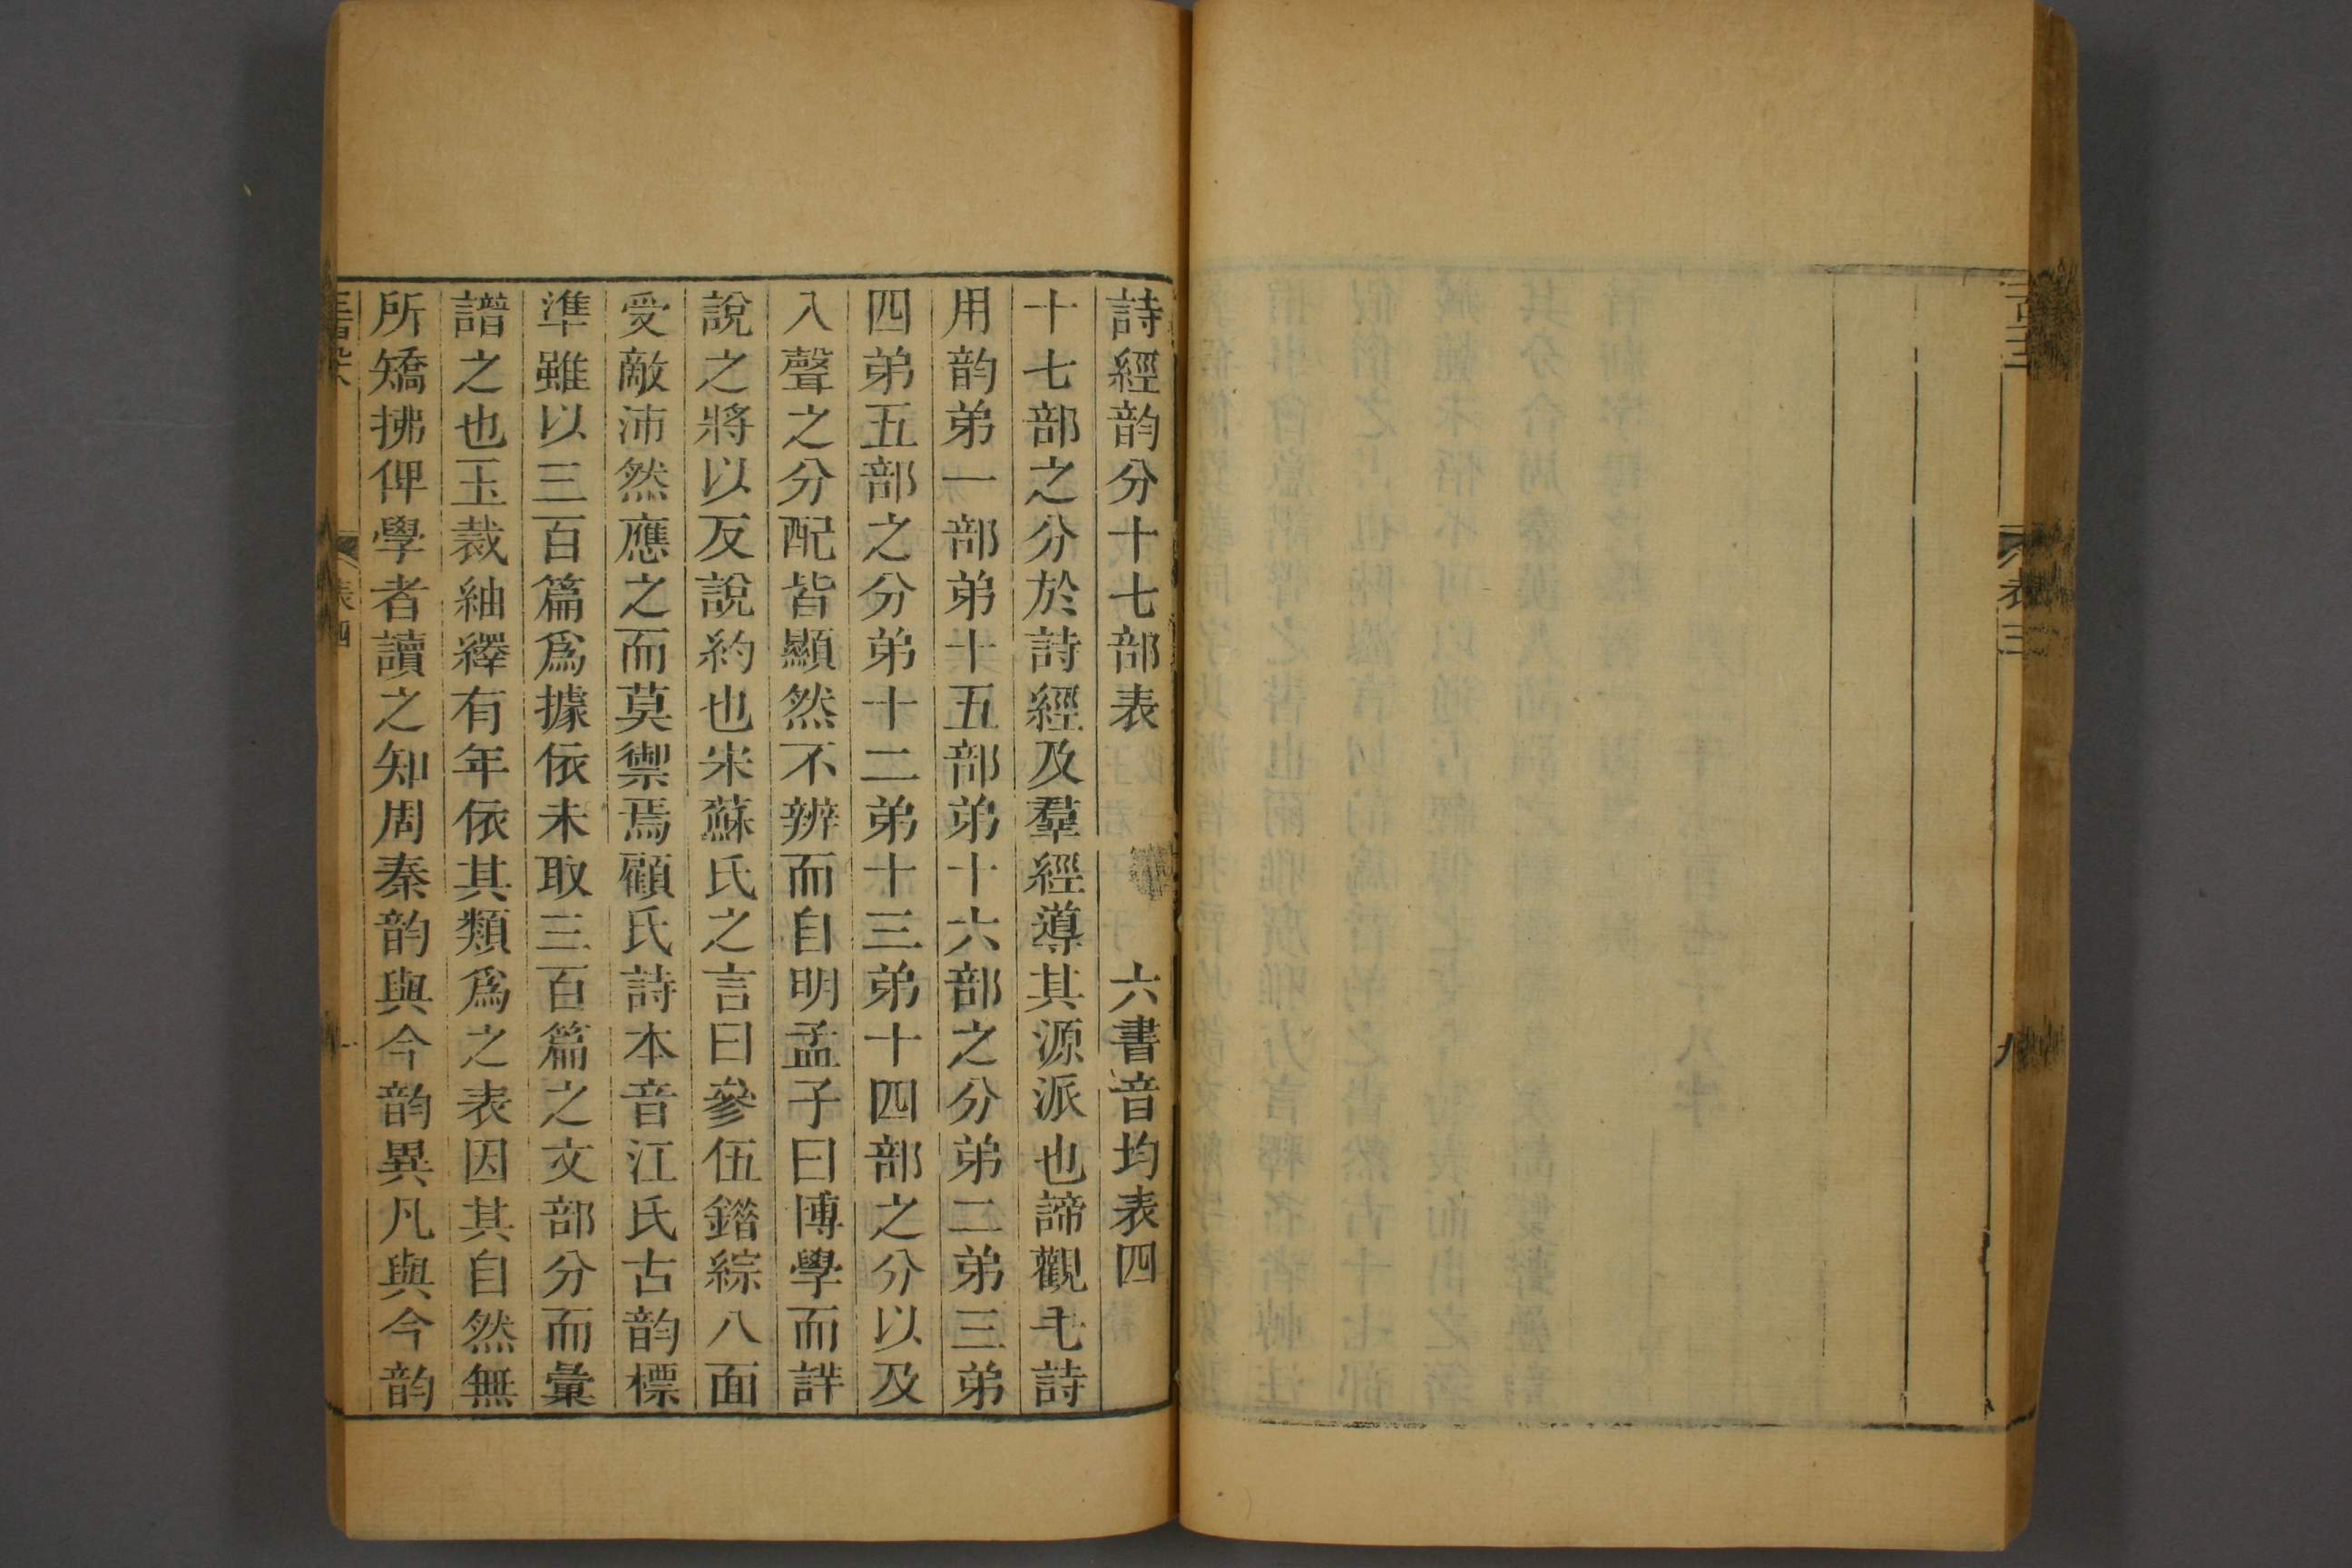 表三
九
詩經韵分十七部表　六書音均表四
十七部之分於詩經及羣經導其源派也諦觀毛詩
用韵弟一部弟十五部弟十六部之分弟二弟三弟
四弟五部之分弟十二弟十三弟十四部之分以及
入聲之分配皆顯然不辨而自明孟子曰博學而詳
說之將以反說約也宋蘇氏之言曰參伍錯綜八面
受敵沛然應之而莫禦焉顧氏詩本音江氏古韵標
準雖以三百篇爲據依未取三百篇之文部分而彙
譜之也玉裁紬繹有年依其類爲之表因其自然無
所矯拂俾學者讀之知周秦韵與今韵異凡與今韵
表四
一